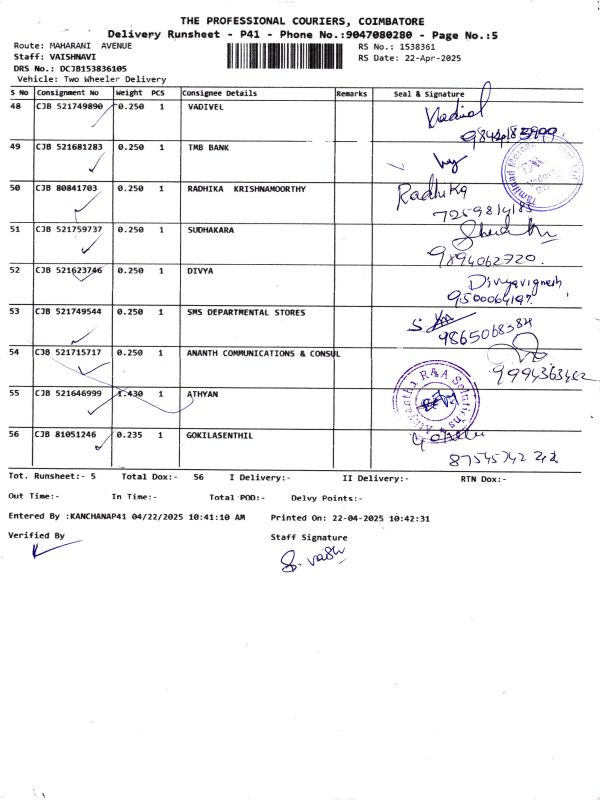 THE PROFESSIONAL COURIERS, COIMBATORE
Delivery Runsheet - P41 - Phone No.:9047080280 - Page No.:5
Route: MAHARANI AVENUE
RS No.: 1538361
Staff: VAISHNAVI
RS Date: 22-Apr-2025
DRS No.: DCJB153836105
Vehicle: Two Wheeler Delivery
S No Consignment No Weight PCS Consignee Details Remarks Seal & Signature
48 CJB 521749890 0.250 1 VADIVEL Vadivel
49 CJB 521681283 0.250 1 TMB BANK
50 CJB 80841703 0.250 1 RADHIKA KRISHNAMOORTHY Radhika
51 CJB 521759737 0.250 1 SUDHAKARA
9894062720.
52 CJB 521623746 0.250 1 DIVYA Divyavignesh
53 CJB 521749544 0.250 1 SMS DEPARTMENTAL STORES
9865068384
54 CJB 521715717 0.250 1 ANANTH COMMUNICATIONS & CONSUL
55 CJB 521646999 1.430 1 ATHYAN
56 CJB 81051246 0.235 1 GOKILASENTHIL
Tot. Runsheet:- 5 Total Dox:- 56 I Delivery:- II Delivery:- RTN Dox:-
Out Time:- In Time:- Total POD:- Delvy Points:-
Entered By :KANCHANAP41 04/22/2025 10:41:10 AM Printed On: 22-04-2025 10:42:31
Verified By Staff Signature